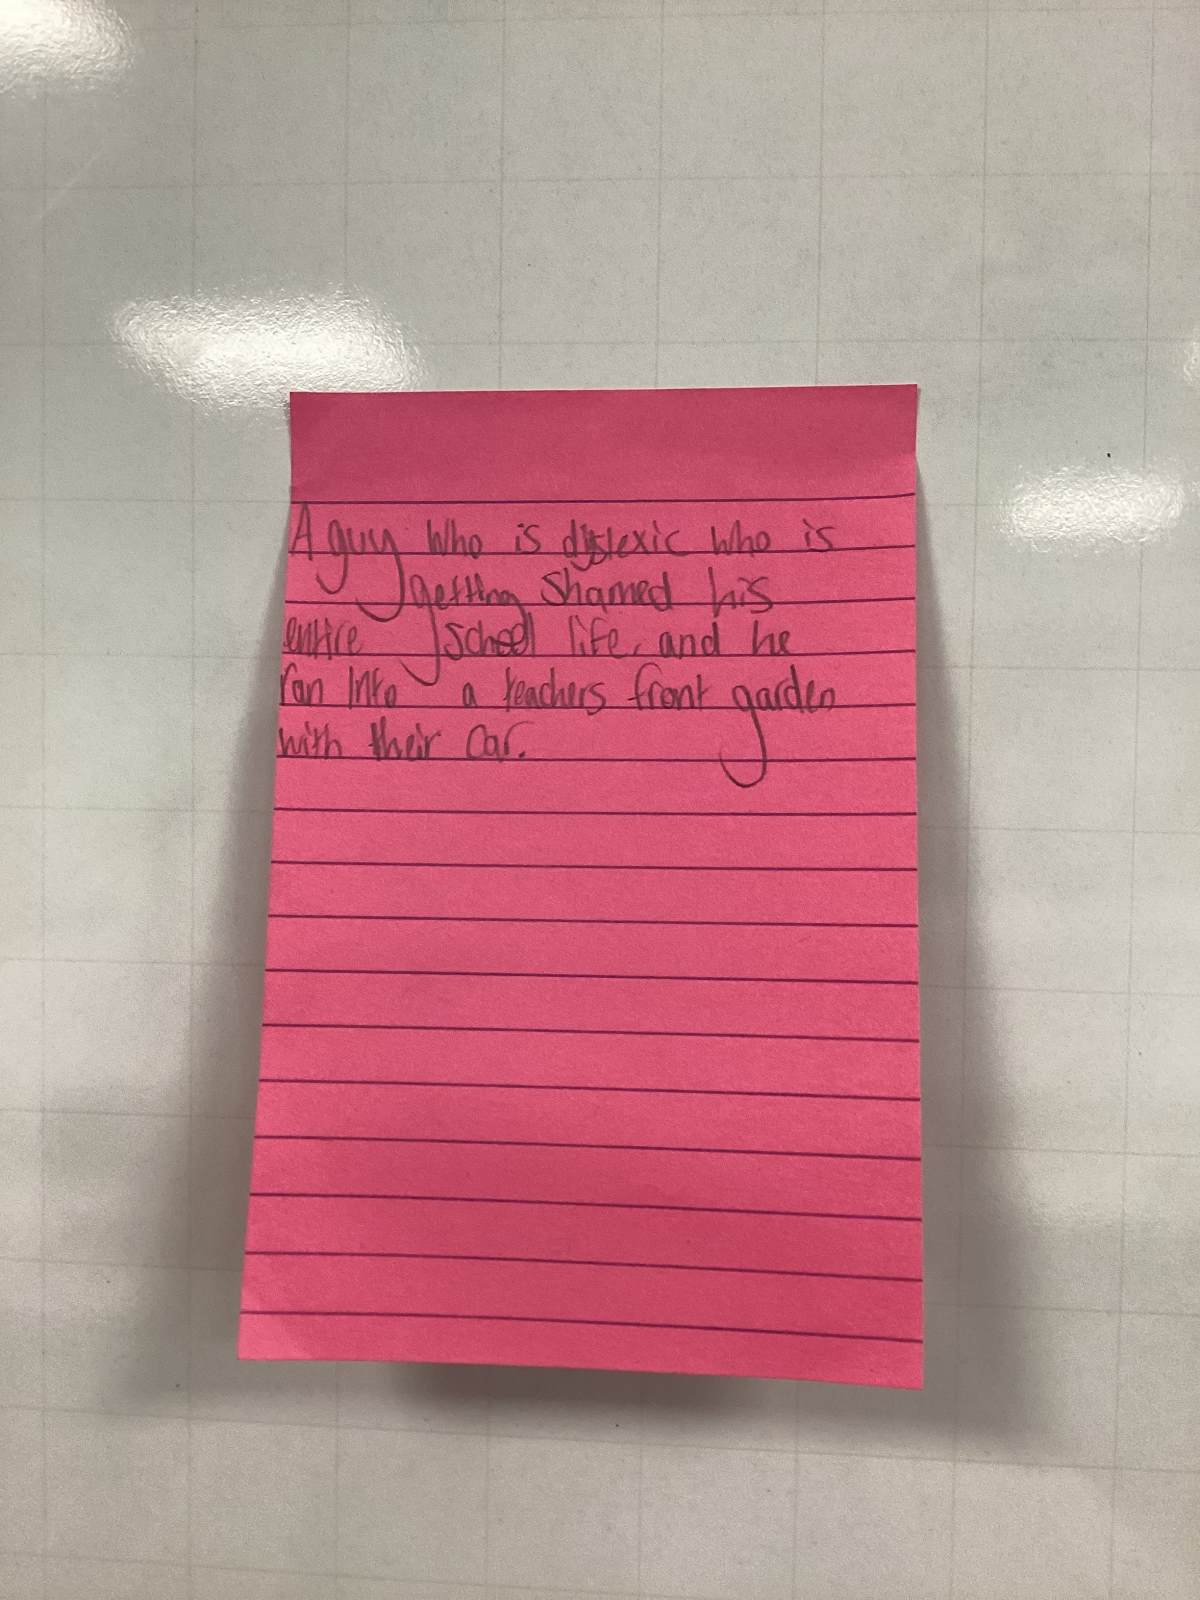 A guy who is dyslexic who is
getting shamed his
entire school life, and he
ran into a teachers front garden
with their car.